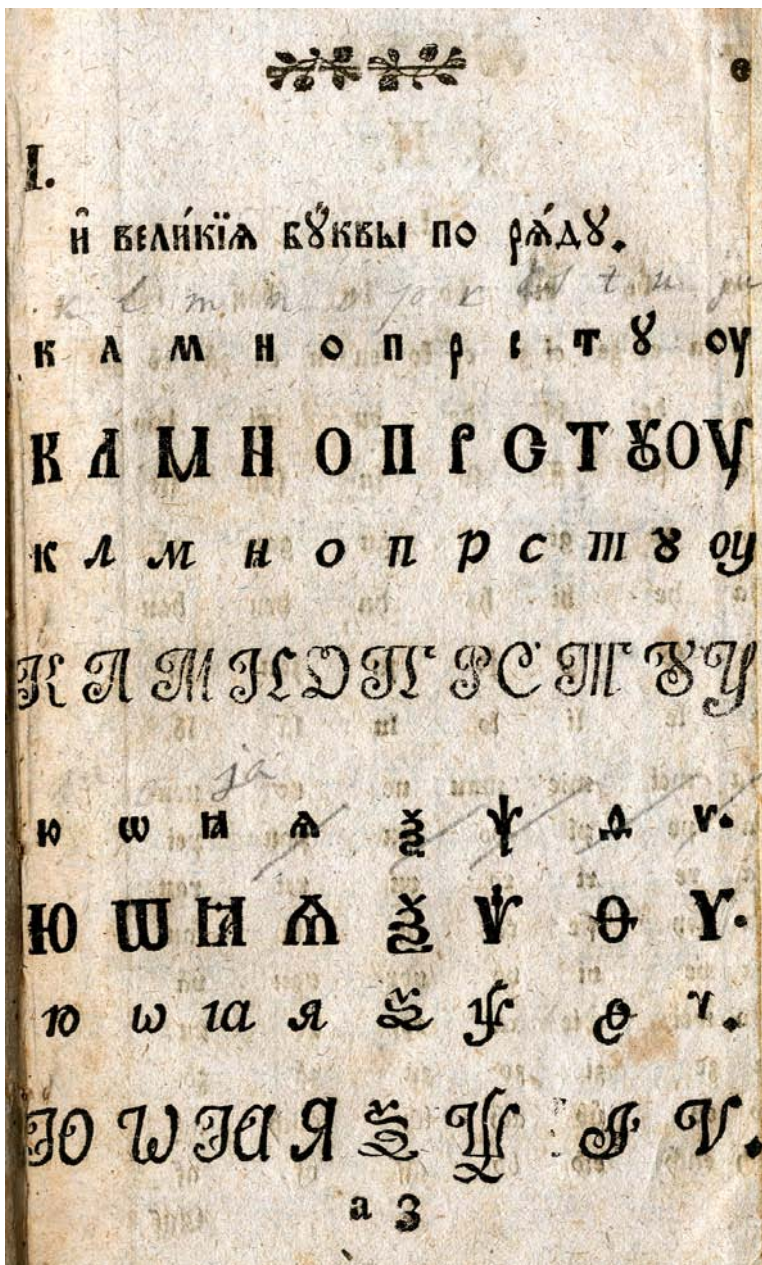 є
I.
и҆ вели́кїѧ бꙋ́квы по рѧ́дꙋ.
k l m n o p r t u ju
к л м н о п р с т ꙋ оу
К Л М Н О П Р С Т Ꙋ ОУ
к л м н о п р с т ꙋ оу
К Л М Н О П Р С Т Ꙋ У
ja
ю ѡ ꙗ ѧ ѯ ѱ ѳ ѵ.
Ю Ѡ Ꙗ Ѧ Ѯ Ѱ Ѳ Ѵ.
ю ѡ ıа я ѯ ѱ ѳ ѵ.
Ю Ѡ IА Я Ѯ Ѱ Ѳ Ѵ.
а 3